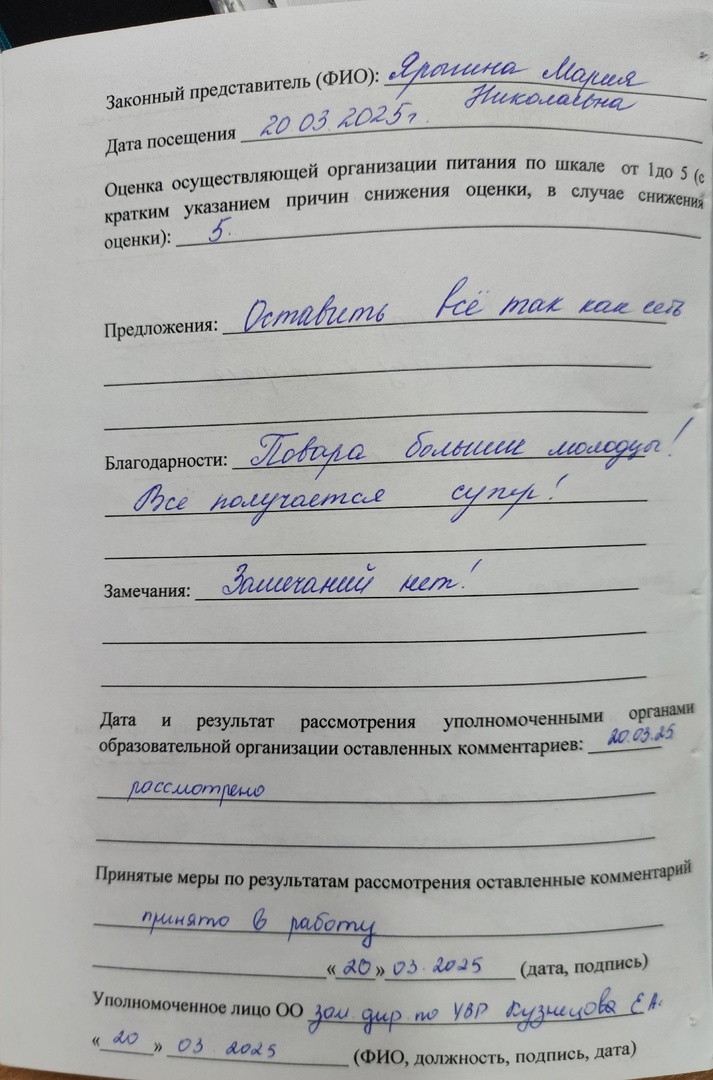 Законный представитель (ФИО): Ярыгина Мария
Николаевна
Дата посещения 20.03.2025г.
Оценка осуществляющей организации питания по шкале от 1до 5 (с
кратким указанием причин снижения оценки, в случае снижения
оценки): 5.
Предложения: Оставить всё так как есть
Благодарности: Повара большие молодцы!
Всё получается супер!
Замечания: Замечаний нет!
Дата и результат рассмотрения уполномоченными органами
образовательной организации оставленных комментариев: 20.03.25
рассмотрено
Принятые меры по результатам рассмотрения оставленные комментарий
принято в работу
«20» 03.2025 (дата, подпись)
Уполномоченное лицо ОО зам. дир. по УВР Кузнецова Е.А.
«20» 03 2025 (ФИО, должность, подпись, дата)